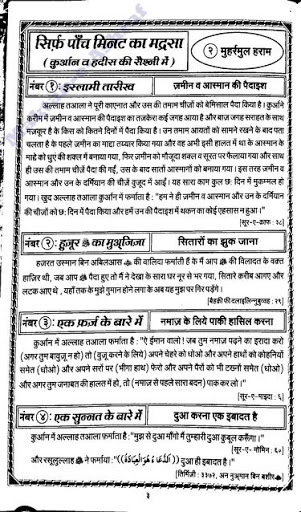 सिर्फ़ पाँच मिनट का मद्रसा
( क़ुर्आन व हदीस की रौश्नी में )
२ मुहर्रमुल हराम
नंबर १: इस्लामी तारीख
ज़मीन व आस्मान की पैदाइश
अल्लाह तआला ने पूरी काएनात और उस की तमाम चीज़ों को बेमिसाल पैदा किया है। क़ुर्आने
करीम में ज़मीन व आस्मान की पैदाइश का तज़केरा कई जगह आया है और बाज़ जगह सराहत के साथ
मज़कूर है के किस को कितने दिनों में पैदा किया है। उन तमाम आयतों को सामने रखने के बाद पता
चलता है के पहले ज़मीन का माद्दा तय्यार किया गया और वह अभी इसी हालत में था के आस्मान के
माद्दे को धुएं की शक्ल में बनाया गया, फिर ज़मीन को मौजूदा शक्ल व सूरत पर फैलाया गया और साथ
ही उस की तमाम चीज़ें पैदा की गईं, उस के बाद सातों आस्मानों को बनाया गया। इस तरह ज़मीन व
आस्मान और उन के दर्मियान की चीज़ें वुजूद में आईं। यह सारा काम कुल छ: दिन में मुकम्मल हो
गया। खुद अल्लाह तआला क़ुर्आन में फर्माता है : "हम ने ही ज़मीन व आस्मान और उन के दर्मियान
की चीज़ों को छ: दिन में पैदा किया और हमें उन की पैदाइश में थकन का कोई एहसास न हुआ।"
[सूर-ए-क़ाफ : ३८]
नंबर २: हुज़ूर ﷺ का मुअ्जिज़ा
सितारों का झुक जाना
हज़रत उस्मान बिन अबिलआस की वालिदा फर्माती हैं के मैं आप ﷺ की विलादत के वक्त
हाज़िर थी, जब आप ﷺ पैदा हुए तो मैं ने देखा के सारा घर नूर से भर गया, सितारे करीब आए और
लटक आए थे , यहाँ तक के मुझे गुमान होने लगा के अब यह मुझ पर गिर पड़ेंगे।
[बैहक़ी फी दलाइलिन्नुबुव्वह : २९]
नंबर ३: एक फ़र्ज़ के बारे में
नमाज़ के लिये पाकी हासिल करना
क़ुर्आन में अल्लाह तआला फर्माता है : "ऐ ईमान वालो ! जब तुम नमाज़ पढ़ने का इरादा करो
(अगर तुम बावुज़ू न हो) तो (वुज़ू करने के लिये) अपने चेहरे को धोओ और अपने हाथों को कोहनियों
समेत (धोओ) और अपने सरों पर (भीगा हाथ) फेरो और अपने पैरों को भी टख्नों समेत (धोओ)
और अगर तुम जनाबत की हालत में हो, तो (नमाज़ से पहले सारा बदन) पाक कर लो।"
[सूर-ए-माइदा : ६]
नंबर ४: एक सुन्नत के बारे में
दुआ करना एक इबादत है
क़ुर्आन में अल्लाह तआला फर्माता है : "मुझ से दुआ माँगो मैं तुम्हारी दुआ क़ुबूल करूँगा।"
[सूर-ए-मोमिन : ६०]
और रसूलुल्लाह ﷺ ने फर्माया : ((اَلدُّعَاءُ هُوَ الْعِبَادَةُ)) "दुआ ही इबादत है।"
[तिर्मिज़ी : ३३७२, अन नुअ्मान बिन बशीर]
३